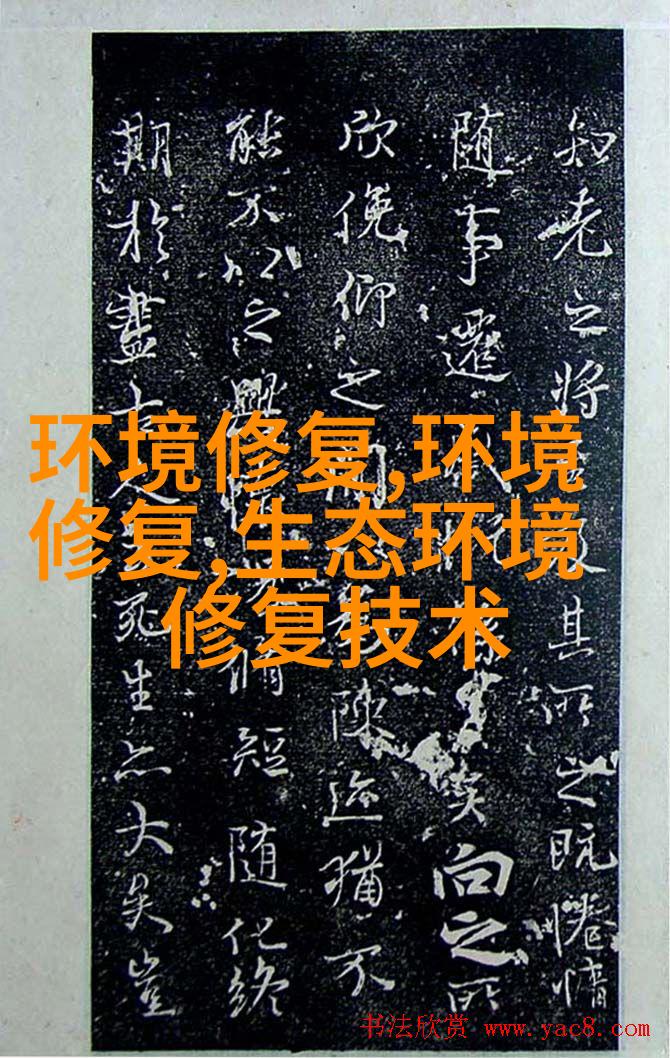 知老之将其所之既惓情
随事遷矣向之所
欣俛仰之間陳迹猶不
能不以之興脩短随化終
期於盡古人死生亦大矣豈
环境修复,环境
修复,生态环境
修复技术
书法欣赏 www.yac8.com